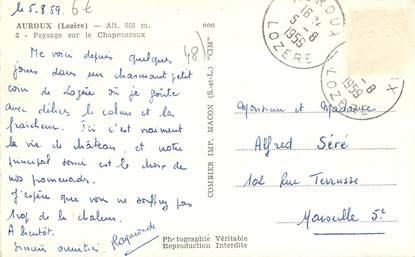 le 5.8.59
6€
AUROUX (Lozère) — Alt. 860 m.
3 - Paysage sur le Chapeauroux
Me voici depuis quelques
48
jours dans un charmant petit
coin de Lozère où je goûte
avec délices le calme et la
fraîcheur. Ici c'est vraiment
la vie de château, et notre
principal souci est le choix de
nos promenades.
J'espère que vous ne souffrez pas
trop de la chaleur.
A bientôt.
amitiés Raymonde
Photographie Véritable
Reproduction Interdite
COMBIER IMP. MACON (S.-et-L.) "CIM"
AUROUX
16 H
5 - 8
1959
LOZERE
5 - 8
1959
LOZERE
Monsieur et Madame
Alfred Séré
102 Rue Terrusse
Marseille 5e